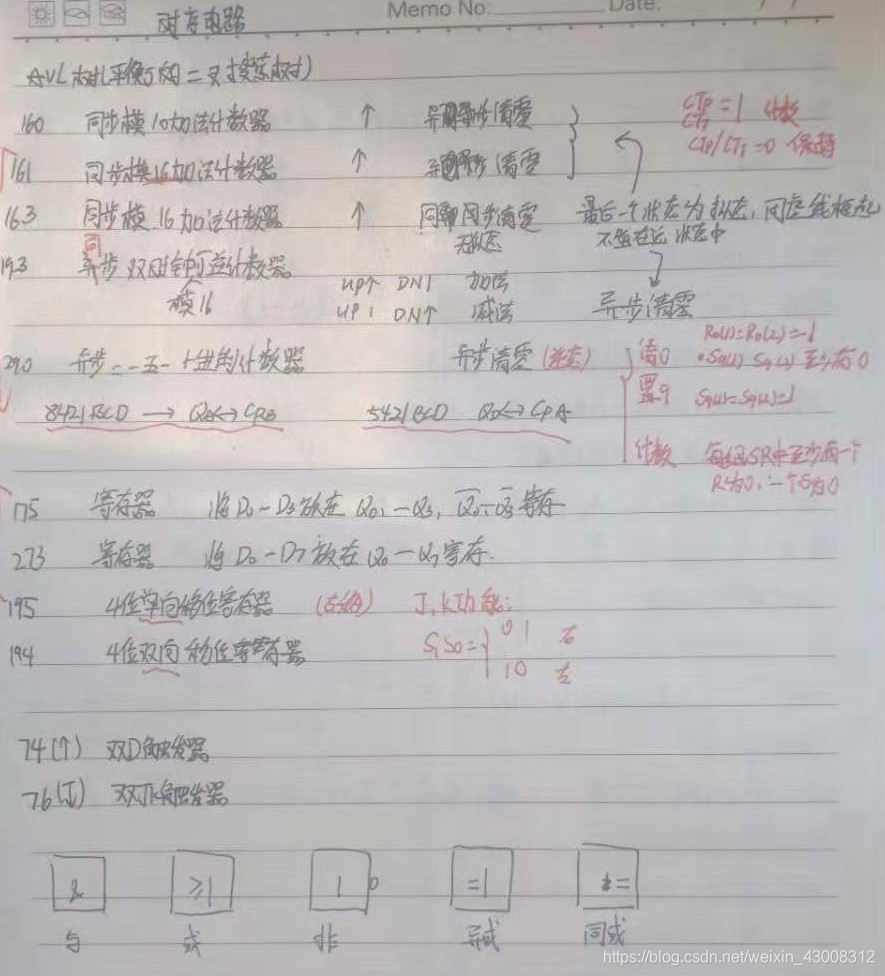 Memo No: Date: / /
时序电路
AVL树(平衡二叉搜索树)
160 同步模10加法计数器 ↑ 异步清零
CTP = 1 计数
CTT
CTP/CTT=0 保持
161 同步模16加法计数器 ↑ 异步清零
163 同步模16加法计数器 ↑ 同步清零
最后一个状态为 态, 同虚线框起
无 态 不算在 状态中
193 同步双时钟可逆计数器
模16
UP↑ DN1 加法
UP1 DN↑ 减法
异步清零
290 异步二-五-十进制计数器 异步清零
清0 R0(1)=R0(2)=1
S9(1) S9(2) 至少有0
置9 S9(1)=S9(2)=1
8421BCD → QA↔CPB 5421BCD QD↔CPA
计数 每组SR中至少有一个
R为0, 一个S为0
175 寄存器 将D0-D3放在Q0-Q3, Q0-Q3寄存
273 寄存器 将D0-D7放在Q0-Q7寄存.
195 4位单向移位寄存器 (右移) J,K功能:
194 4位双向移位寄存器 S1S0= 01 右
10 左
74(↑) 双D触发器
76(↓) 双JK触发器
& ≥1 1 =1 =
与 或 非 异或 同或
https://blog.csdn.net/weixin_43008312